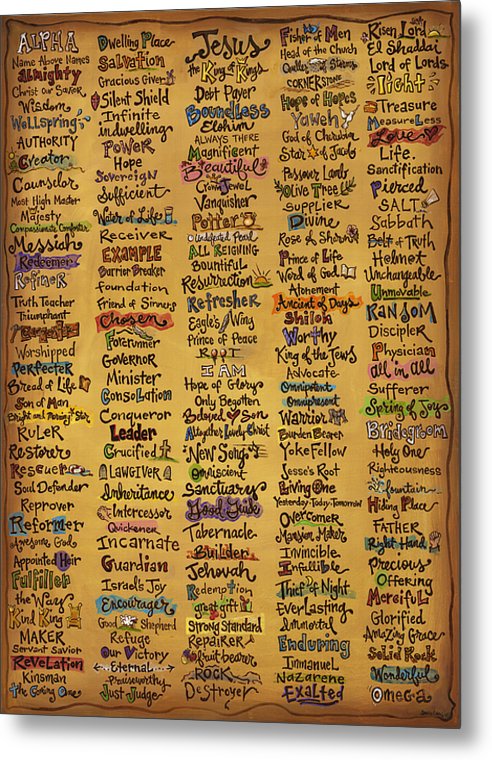 ALPHA
Name Above Names
Almighty
Christ our Savior
Wisdom
Wellspring
AUTHORITY
Creator
Counselor
Most High Master
Majesty
Compassionate Comforter
Messiah
Redeemer
Refiner
Truth Teacher
Triumphant
Worshipped
Perfecter
Bread of Life
Son of Man
Bright and Morning Star
Ruler
Restorer
Rescuer
Soul Defender
Reprover
Reformer
Awesome God
Appointed Heir
Fulfiller
the Way
Kind King
MAKER
Servant Savior
Revelation
Kinsman
the Going One
Dwelling Place
Salvation
Gracious Giver
Silent Shield
Infinite
indwelling
Power
Hope
Sovereign
Sufficient
Water of Life
Receiver
EXAMPLE
Barrier Breaker
Foundation
Friend of Sinners
Chosen
Forerunner
Governor
Minister
Consolation
Conqueror
Leader
Crucified
LAWGIVER
Inheritance
Intercessor
Quickener
Incarnate
Guardian
Israel's Joy
Encourager
Good Shepherd
Refuge
Our Victory
Eternal
Praiseworthy
Just Judge
Jesus
the King of Kings
Debt Payer
Boundless
Elohim
ALWAYS THERE
Magnificent
Beautiful
Crown Jewel
Vanquisher
Potter
Undefeated Pearl
All Reigning
Bountiful
Resurrection
Refresher
Eagle's Wing
Prince of Peace
ROOT
I AM
Hope of Glory
Only Begotten
Beloved Son
Altogether Lovely Christ
New Song
Omniscient
Sanctuary
Good Guide
Tabernacle
Builder
Jehovah
Redemption
great gift
Strong Standard
Repairer
fruit bearer
ROCK
Destroyer
Fisher of Men
Head of the Church
Queller of Storms
CORNERSTONE
Hope of Hopes
Yaweh
God of Cherubim
Star of Jacob
Passover Lamb
Olive Tree
Supplier
Divine
Rose of Sharon
Prince of Life
Word of God
Atonement
Ancient of Days
Shiloh
Worthy
King of the Jews
Advocate
Omnipotent
Omnipresent
Warrior
Burden Bearer
Yoke Fellow
Jesse's Root
Living One
Yesterday-Today-Tomorrow
Overcomer
Mansion Maker
Invincible
Infallible
Thief of Night
Everlasting
Immortal
Enduring
Immanuel
Nazarene
Exalted
Risen Lord
El Shaddai
Lord of Lords
Light
Treasure
Measureless
Love
Life
Sanctification
Pierced
SALT
Sabbath
Belt of Truth
Helmet
Unchangeable
Unmovable
Random
Discipler
Physician
all in all
Sufferer
Spring of Joy
Bridegroom
Holy One
Righteousness
Fountain
Hiding Place
FATHER
Right Hand
Precious
Offering
Merciful
Glorified
Amazing Grace
Solid Rock
Wonderful
Omega